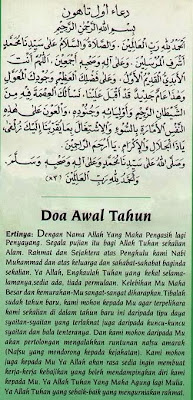 دعاء اول تاهون
بسم الله الرحمن الرحيم
الحمد لله رب العالمين، والصلاة والسلام على سيدنا محمد
وعلى آله وصحبه أجمعين، اللهم أنت
الأبدي القديم الأول، وعلى فضلك العظيم وجودك المعول
وهذا عام جديد قد أقبل، نسألك العصمة فيه من
الشيطان الرجيم وأوليائه وجنوده، والعون على هذه
النفس الأمارة بالسوء والاشتغال بما يقربنا إليك زلفى
ياذا الجلال والإكرام، يا أرحم الراحمين
وصلى الله على سيدنا محمد وعلى آله وصحبه وسلم
والحمد لله رب العالمين
Doa Awal Tahun
Ertinga: Dengan Nama Allah Yang Maha Pengasih lagi
Penyayang. Segala pujian itu bagi Allah Tuhan sekalian
Alam. Rahmat dan Sejahtera atas Penghulu kami Nabi
Muhammad dan atas keluarga dan sahabat-sahabat baginda
sekalian. Ya Allah, Engkaulah Tuhan yang kekal selama-
lamanya, sedia ada, tiada permulaan. Kelebihan Mu Maha
Besar dan kemurahan-Mu sangat-sangat diharapkan. Tibalah
sudah tahun baru, kami mohon kepada Mu agar terpelihara
kami sekalian di dalam tahun baru ini daripada tipu daya
syaitan-syaitan yang terlaknat juga daripada kuncu-kuncu
syaitan dan bala tenteranya. Dan kami mohon daripada Mu
akan pertolongan mengalahkan runtunan nafsu amarah
(Nafsu yang mendorong kepada kejahatan). Kami mohon
juga kepada Mu Ya Allah akan rasa sedia ingin membuat
kerja-kerja kebajikan yang boleh mendampingkan diri kami
kepada Mu. Ya Allah Tuhan Yang Maha Agung lagi Mulia.
Ya Allah Tuhan yang sebaik-baik yang mengurniakan rahmat.